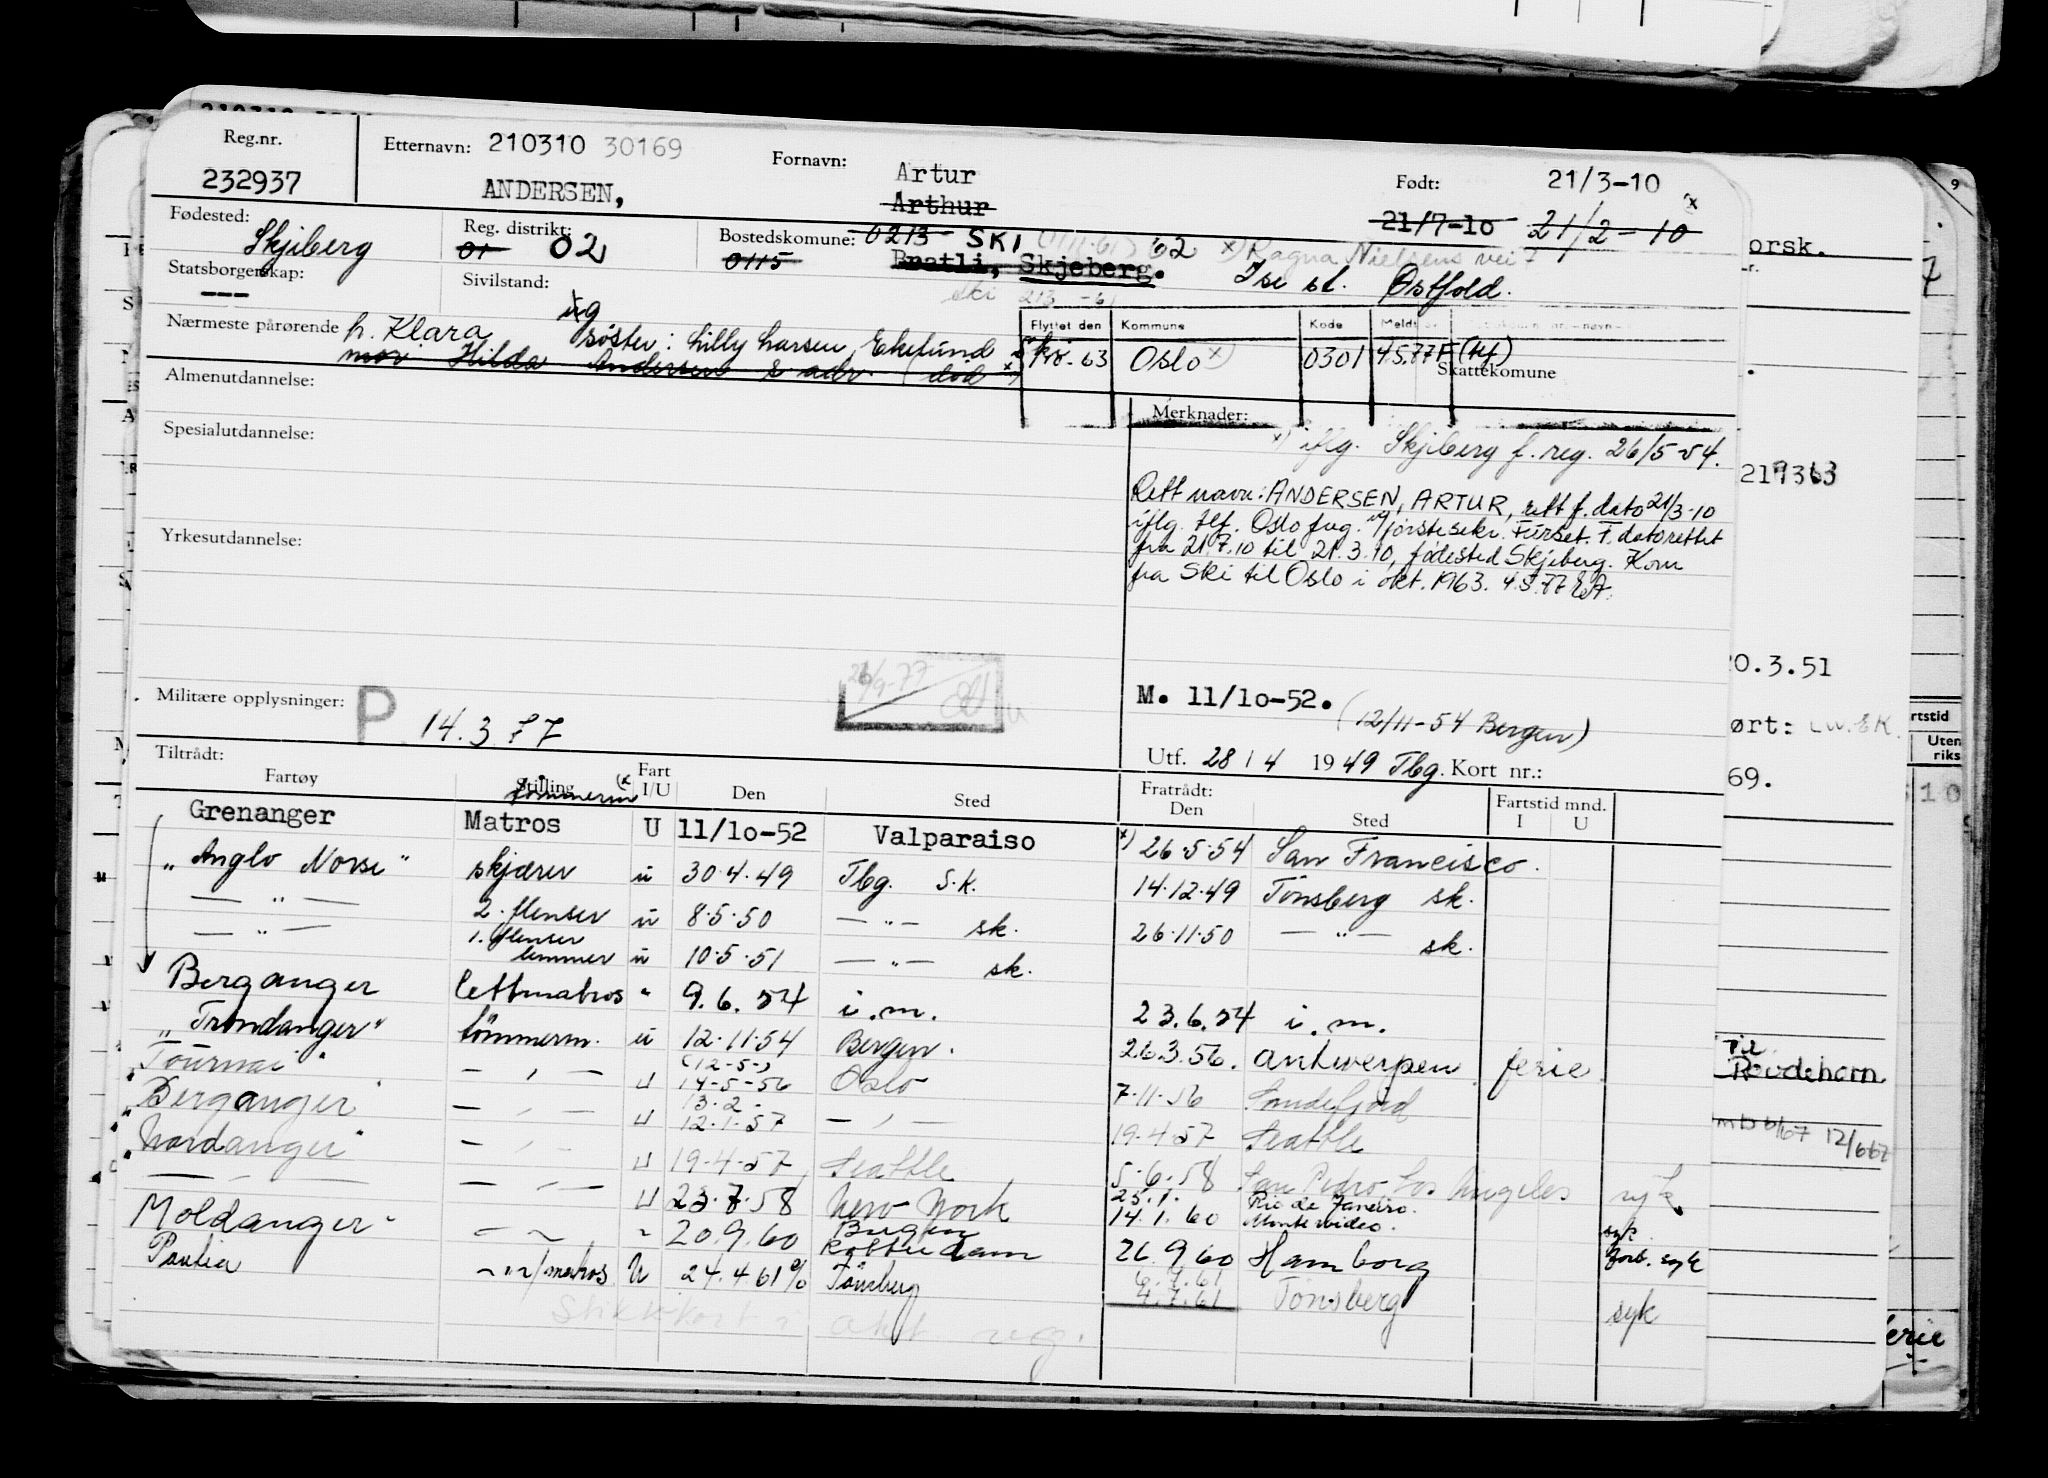 Reg.nr. Etternavn: 210310 30169 Fornavn: Artur Født: 21/3-10
232937 ANDERSEN, Arthur 21/7-10 21/2-10
Fødested: Skjeberg Reg. distrikt: 01 02 Bostedskomune: 0213 SKI 62 x) Ragna Nielsens vei 7
0115 Bratli, Skjeberg. Ise st. Østfold.
Statsborgerskap: --- Sivilstand: ug ski
Nærmeste pårørende h. Klara søster: Lilly Larsen, Ekelund
mor Hilda Andersen s. adr. (død
Flyttet den Kommune Kode Meldt
63 Oslo x) 0301 4.5.77 F (tlf)
Skattekomune
Almenutdannelse:
Merknader:
Spesialutdannelse:
x) iflg. Skjeberg f. reg. 26/5-54.
Rett navn: ANDERSEN, ARTUR, rett f. dato 21/3-10
iflg. tlf. Oslo f.reg. v/førstesekr. Furset. F. dato rettet
fra 21.7.10 til 21.3.10, fødested Skjeberg. Kom
fra Ski til Oslo i okt. 1963. 4.5.77
Yrkesutdannelse:
26/9-77
Militære opplysninger: P 14.3.77
M. 11/10-52. (12/11-54 Bergen)
Utf. 28/4 1949 Tbg. Kort nr.:
Tiltrådt: Fratrådt:
Fartøy Stilling Fart I/U Den Sted Den Sted Fartstid mnd. I U
tømmerm (x
Grenanger Matros U 11/10-52 Valparaiso x) 26.5.54 San Francisco.
"Anglo Norse" skjærer u 30.4.49 Tbg. S.K. 14.12.49 Tönsberg sk.
— " — 2. flenser u 8.5.50 — " — sk. 26.11.50 — " — sk.
— " — 1. flenser lemmer u 10.5.51 — " — sk.
Berganger Lettmatros " 9.6.54 i.m. 23.6.54 i.m.
"Trondanger" tömmerm. u 12.11.54 Bergen. 26.3.56. Antwerpen ferie
"Tournai" — " — U (12-5-) 14-5-56 Oslo 7-11-56 Sandefjord
"Berganger" — " — U 13.2- 12.1.57 — " — 19.4.57 Seattle
"Nordanger" — " — U 19.4.57 Seattle 5-6.58 San Pedro, Los Angeles syk
— " — — " — U 23.7.58 New York 25.1. Rio de Janeiro.
14.1.60 Montevideo. syk
Moldanger - 20.9.60 Bergen Rotterdam 26.9.60 Hamborg forb. syk
Paulia matros U 24.4.61 Tönsberg 6.7.61
4.7.61 Tönsberg syk
Stikkkort i
9
orsk.
7
219363
20.3.51
ørt:
69.
rtstid
Uten
riks
10
Til
12/667
erie